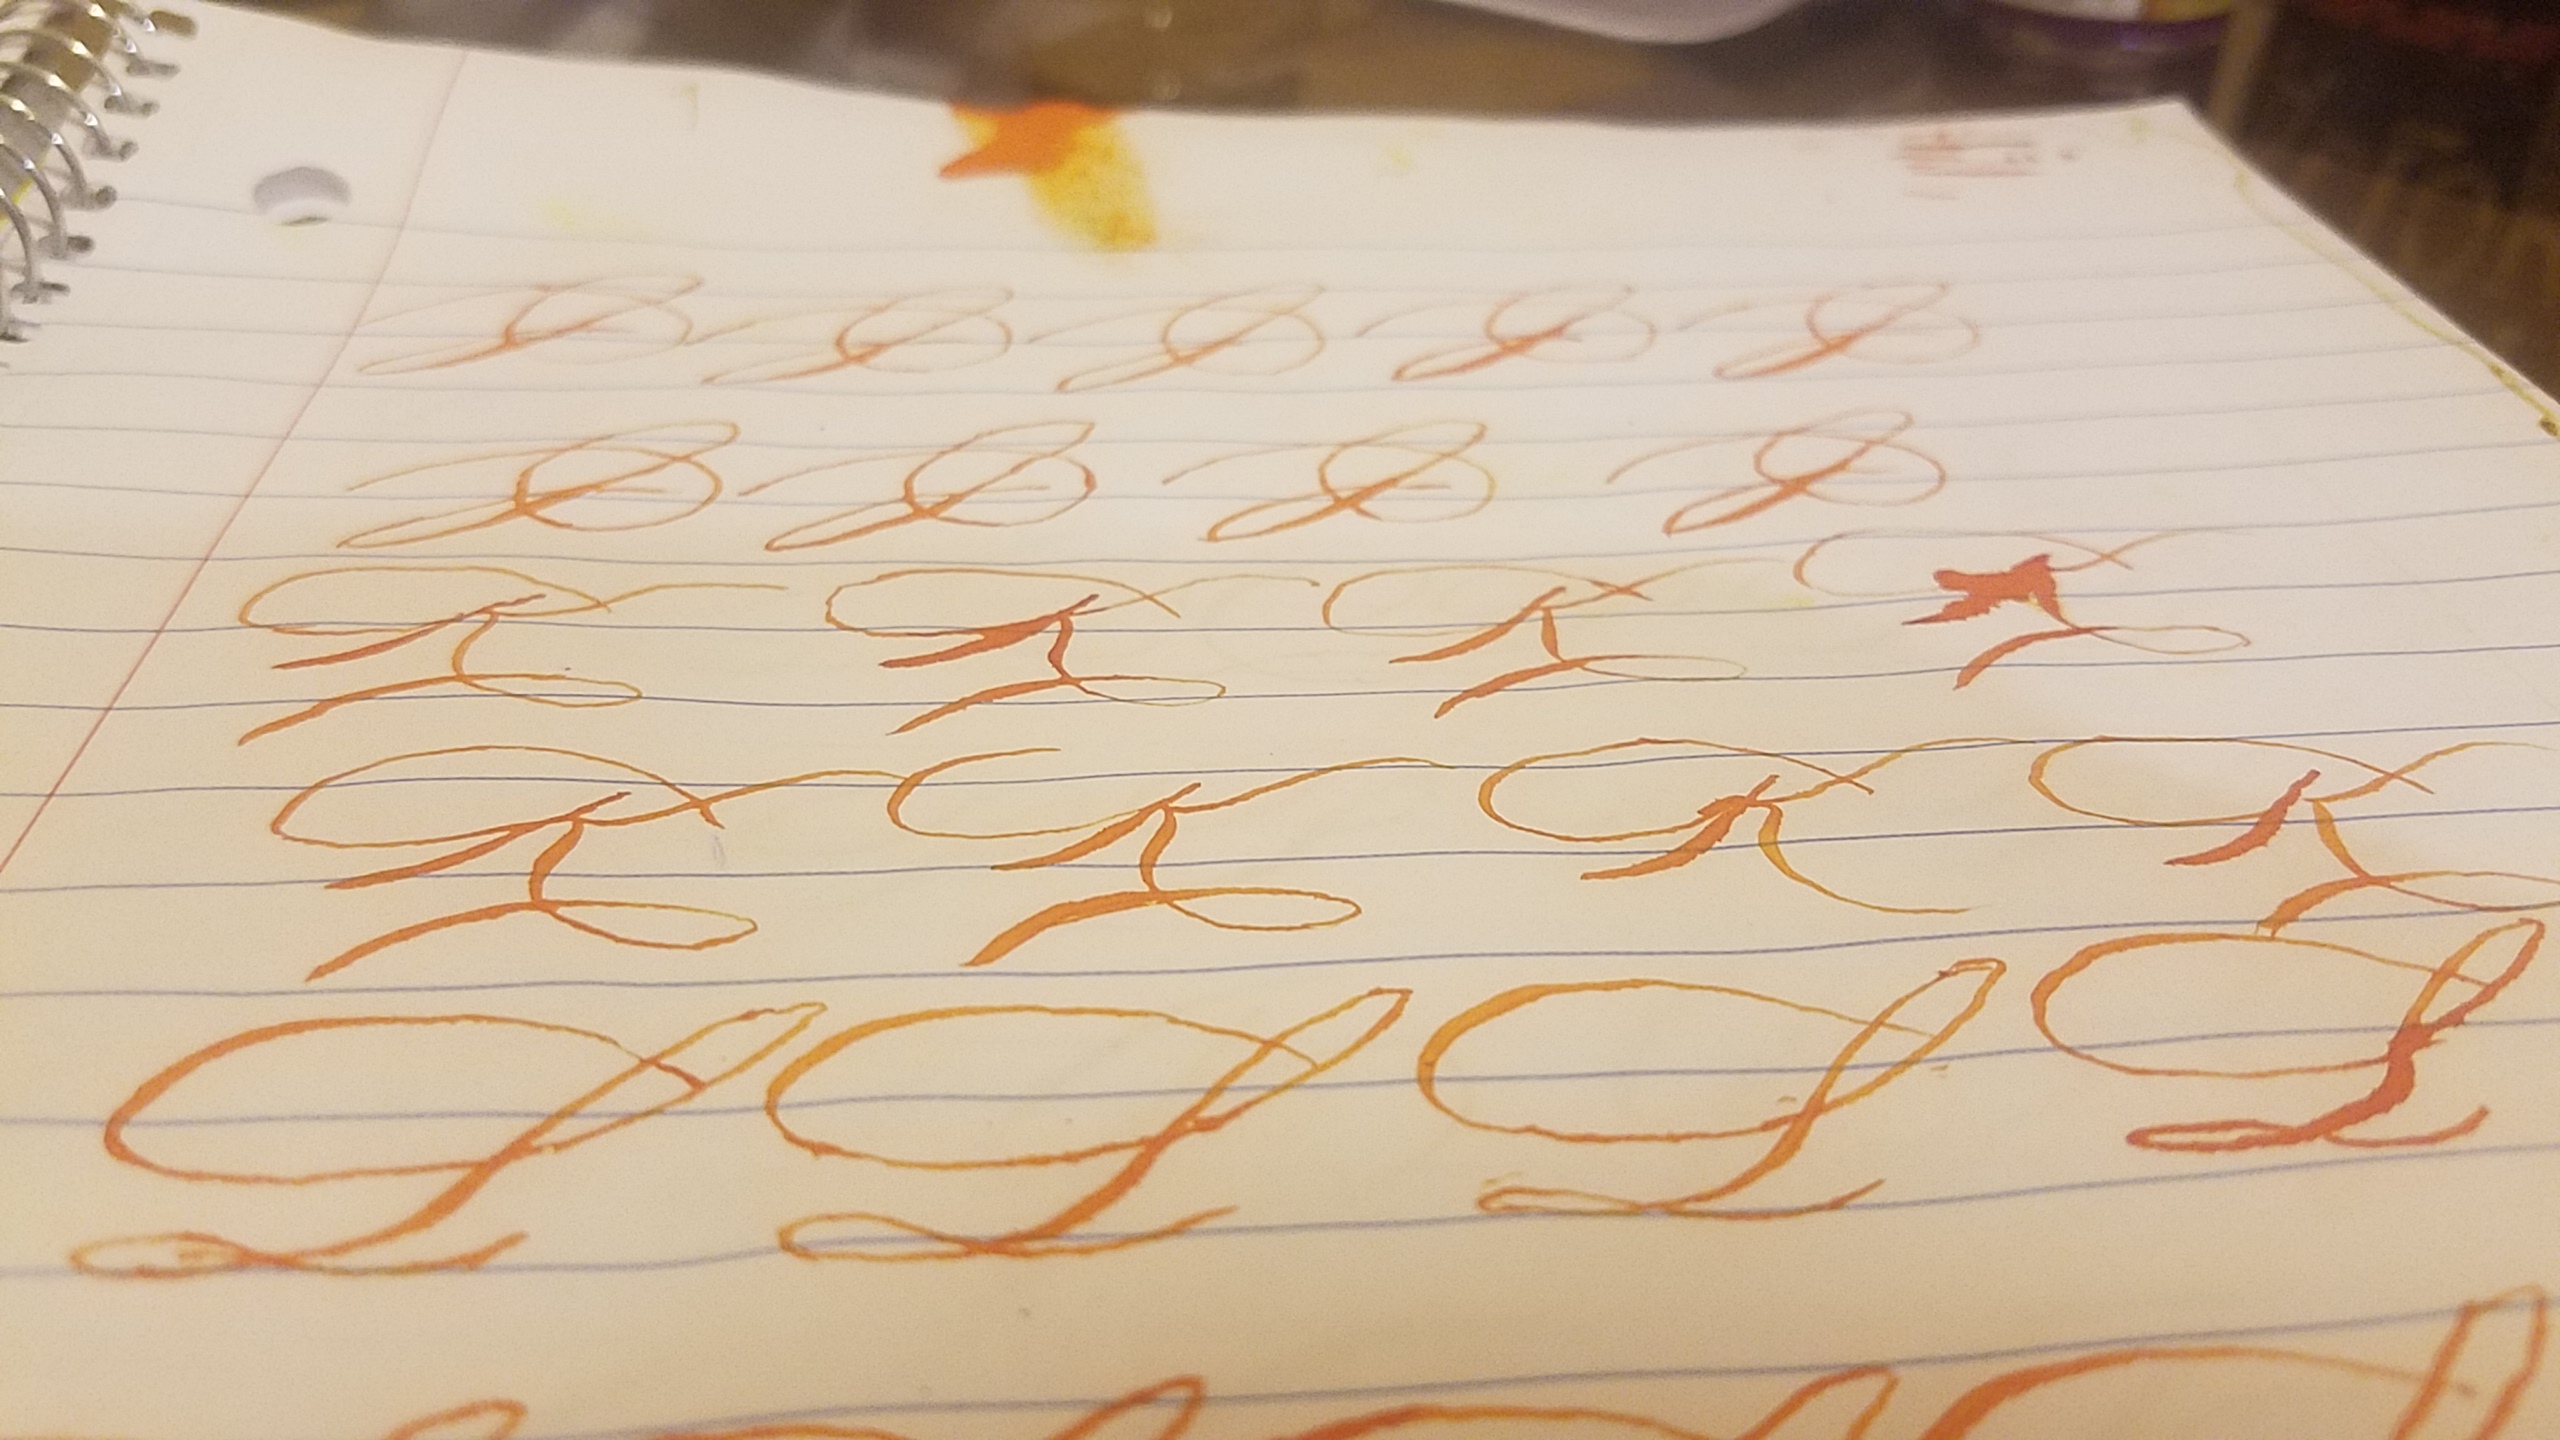 J J J J J
J J J J
K K K K
K K K K
L L L L